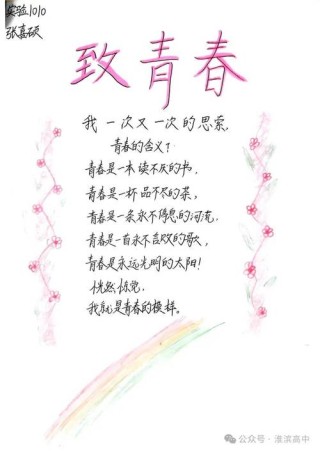 实验1010
张嘉硕
致青春
我一次又一次的思索,
青春的含义?
青春是一本读不厌的书,
青春是一杯品不尽的茶,
青春是一条永不停息的河流,
青春是一首永不言败的歌,
青春是永远光明的太阳!
恍然惊觉,
我就是青春的模样。
公众号·淮滨高中